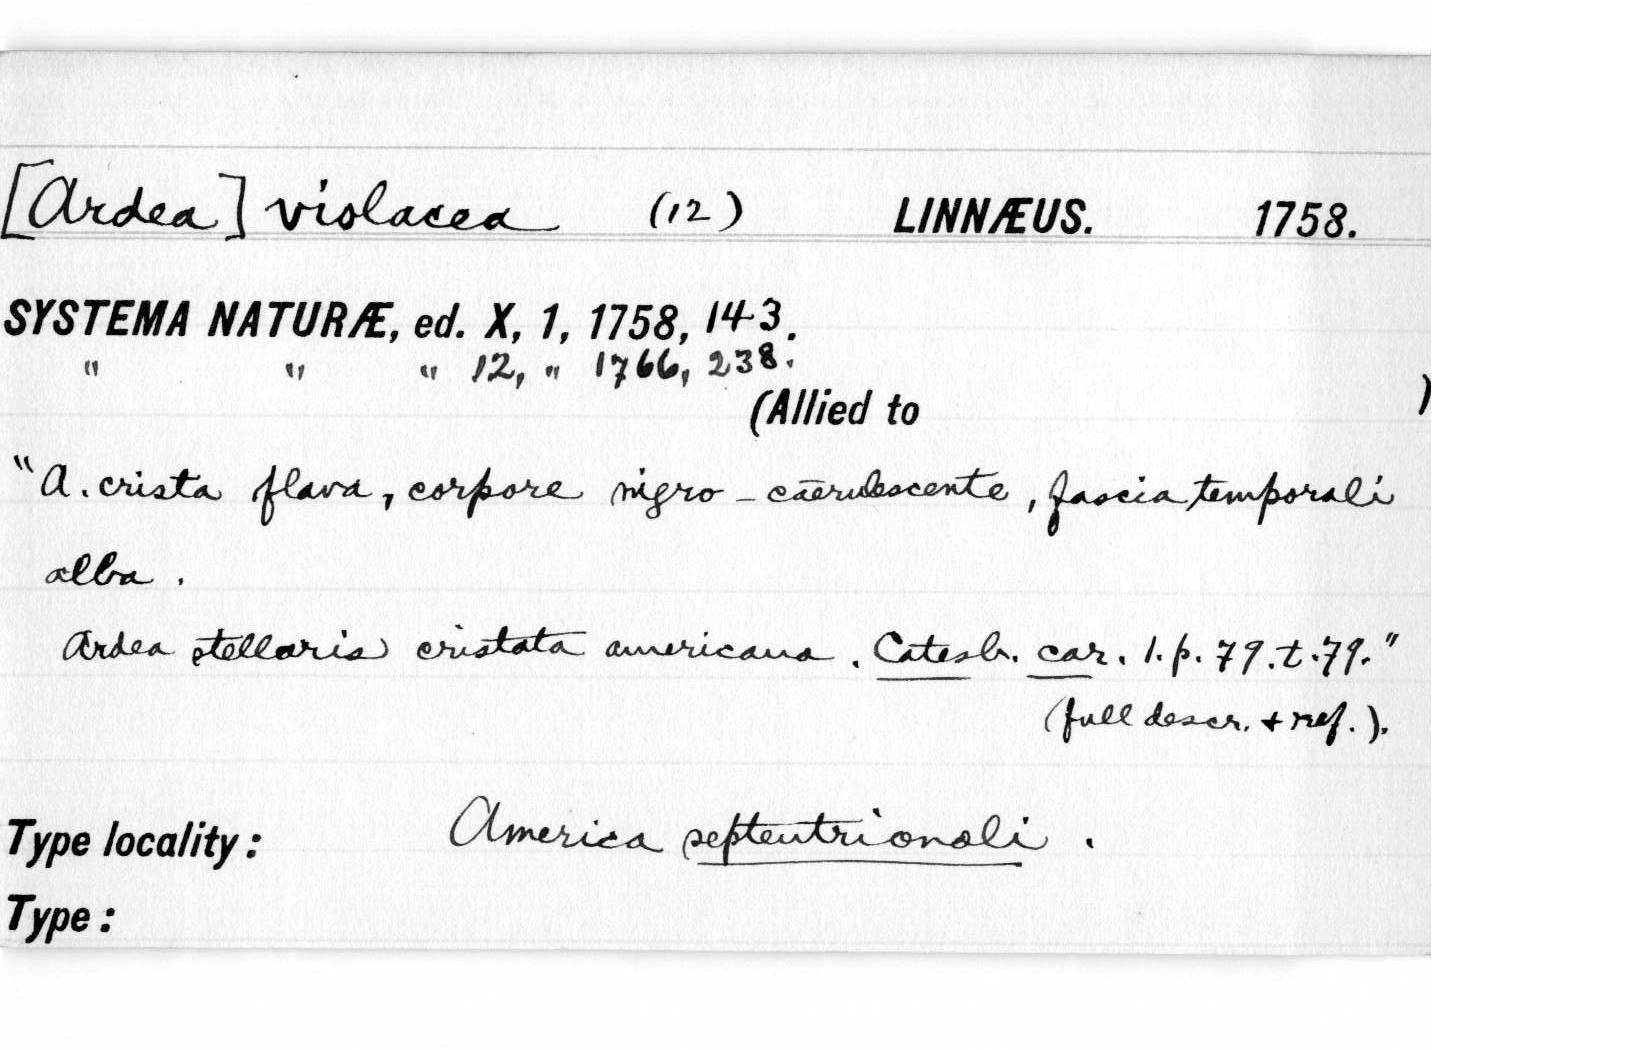 [Ardea] violacea (12) LINNÆUS. 1758.
SYSTEMA NATURÆ, ed. X, 1, 1758, 143.
" " " 12, " 1766, 238.
(Allied to )
"A. crista flava, corpore nigro-caerulescente, fascia temporali
alba.
Ardea stellaris cristata americana. Catesb. car. 1. p. 79. t. 79."
(full descr. + ref.).
Type locality: America septentrionali.
Type: